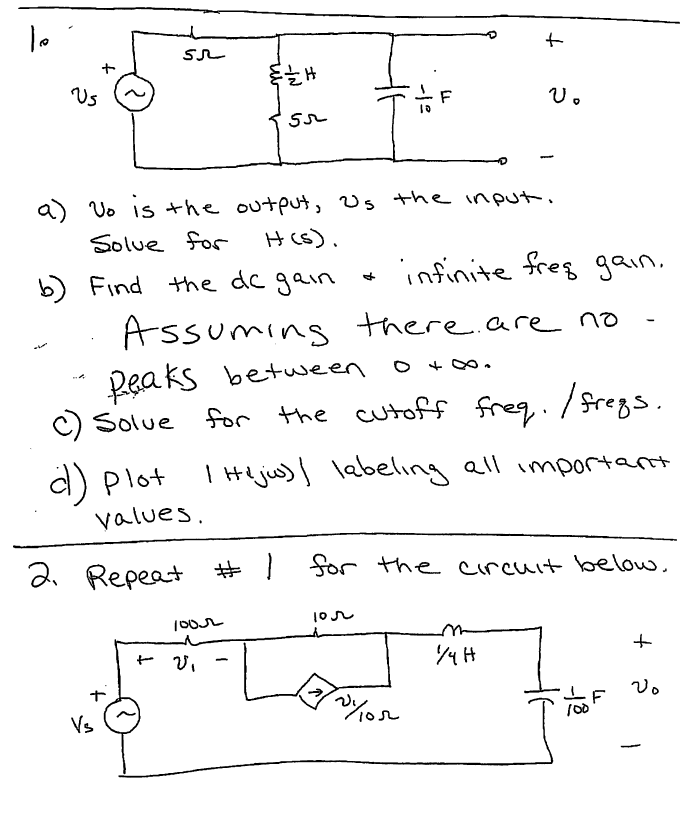 1.
5Ω
+
+
1/2 H
Vs
1/10 F
Vo
5Ω
-
a) Vo is the output, Vs the input.
Solve for H(s).
b) Find the dc gain & infinite freq gain.
Assuming there are no
peaks between 0 + ∞.
c) Solve for the cutoff freq. / freqs.
d) Plot |H(jω)| labeling all important
values.
2. Repeat # 1 for the circuit below.
100Ω
10Ω
+ V1 -
1/4 H
+
+
V1/10Ω
1/100 F
Vo
Vs
-